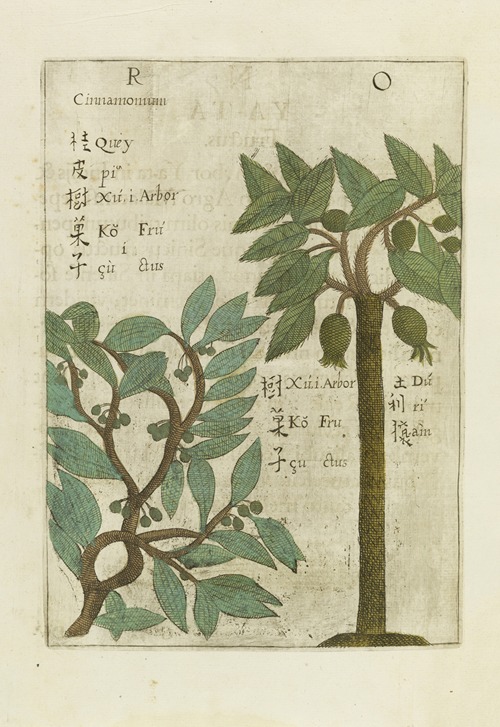 R O
Cinnamomum
桂 Quey
皮 pi
樹 Xú, i Arbor
菓 Kǒ i Frú
子 çù ctus
樹 Xú, i Arbor
菓 Kǒ Fru
子 çu ctus
土 Dú
利 ri
am